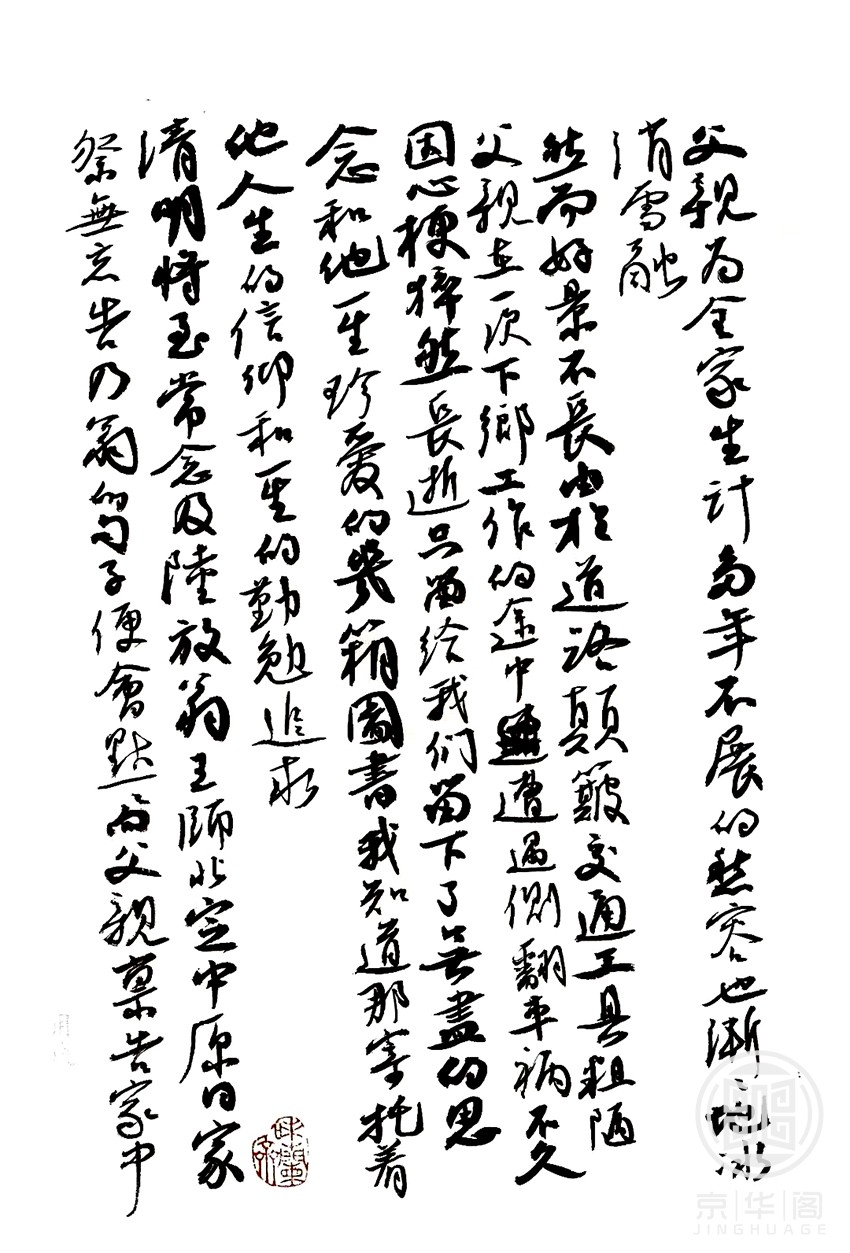 父親为全家生计多年不展的愁容也漸々地冰
消雪融
然而好景不長由於道路顛簸交通工具粗陋
父親在一次下鄉工作的途中遭遇側翻車禍不久
因心梗猝然長逝只留给我们留下了無盡的思
念和他一生珍愛的幾箱圖書我知道那寄托着
他人生的信仰和一生的勤勉追求
清明將至常念及陸放翁王師北定中原日家
祭無忘告乃翁的句子便會默々向父親稟告家中
京华阁
JINGHUAGE